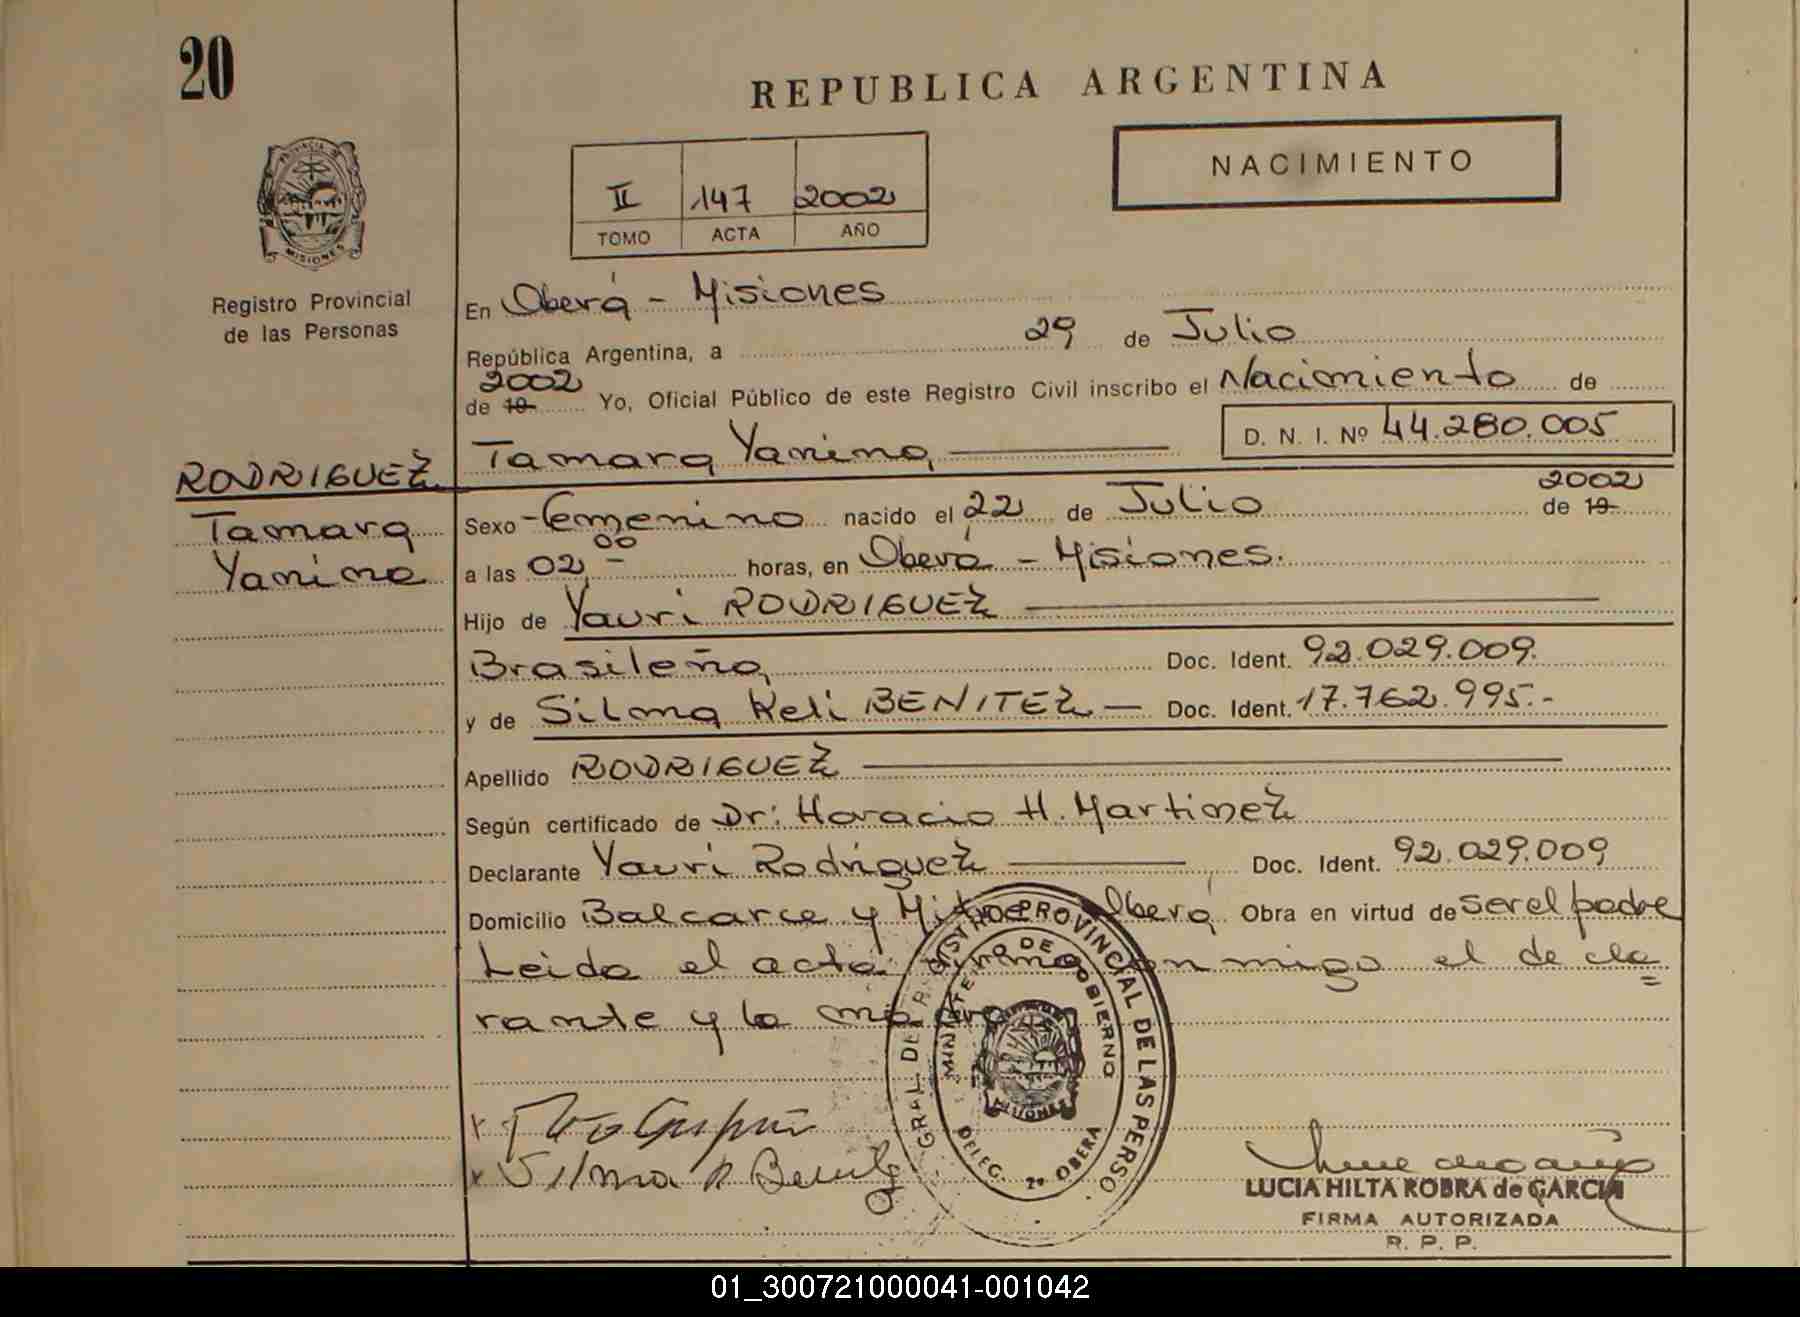 20
REPUBLICA ARGENTINA
NACIMIENTO
II 147 2002
TOMO ACTA AÑO
PROVINCIA DE
MISIONES
Registro Provincial
de las Personas
En Oberá - Misiones
República Argentina, a 29 de Julio
2002
de 19 Yo, Oficial Público de este Registro Civil inscribo el Nacimiento de
D. N. I. Nº 44.280.005
Tamara Yanina,
RODRIGUEZ
Tamara
Yanina
2002
Sexo Femenino nacido el 22 de Julio de 19
a las 02,00 - horas, en Oberá - Misiones.
Hijo de Yauri RODRIGUEZ
Brasileño, Doc. Ident. 92.029.009.
y de Silma Keli BENITEZ — Doc. Ident. 17.762.995.-
Apellido RODRIGUEZ
Según certificado de Dr: Horacio H. Martinez
Declarante Yauri Rodriguez Doc. Ident. 92.029.009
Domicilio Balcarce y Mitre Oberá Obra en virtud de ser el padre
Leida el acta firma conmigo el decla=
rante y la madre
GRAL. DEL REGISTRO PROVINCIAL DE LAS PERSO
MINISTERIO DE GOBIERNO
MISIONES
DELEG. 2º OBERA
x
x Silma K Benitez
LUCIA HILTA ROBRA de GARCIA
FIRMA AUTORIZADA
R. P. P.
01_300721000041-001042